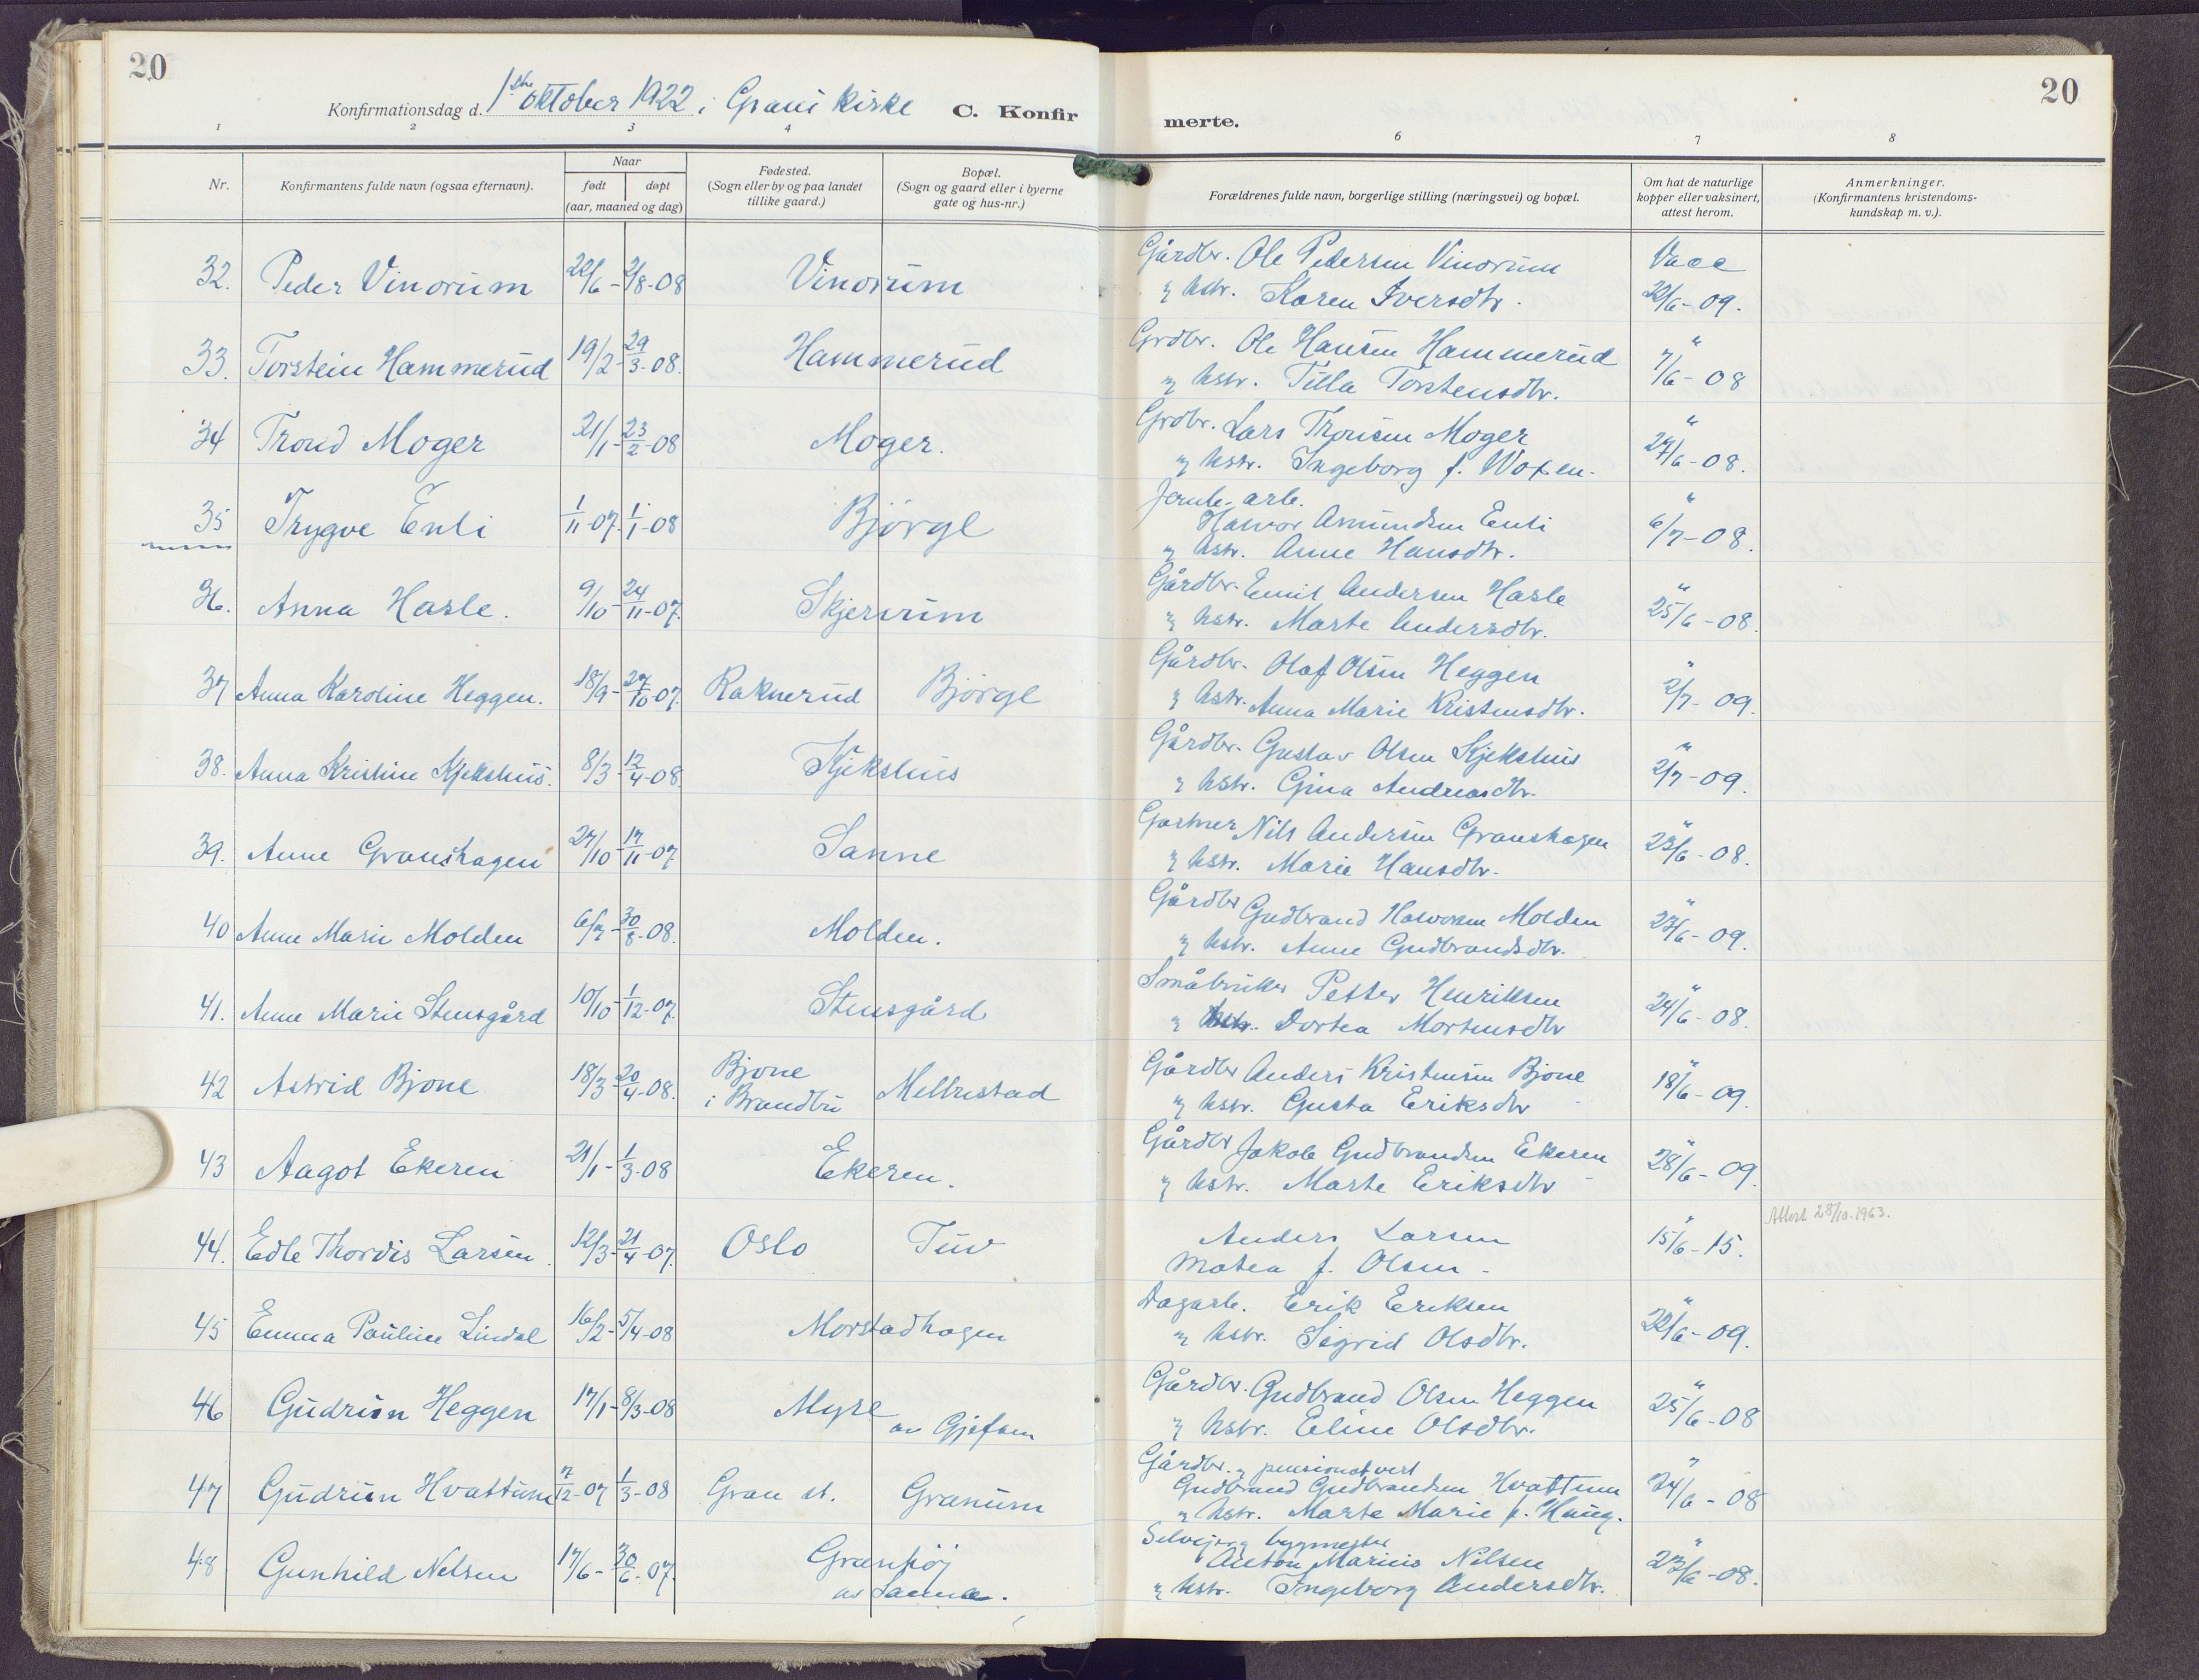 20
20
Konfirmationsdag d. 1ste oktober 1922 i Grans kirke C. Konfirmerte.
1 2 3 4 6 7 8
Nr. Konfirmantens fulde navn (ogsaa efternavn). Naar født døpt (aar, maaned og dag) Fødested. (Sogn eller by og paa landet tillike gaard.) Bopæl. (Sogn og gaard eller i byerne gate og hus-nr.) Forældrenes fulde navn, borgerlige stilling (næringsvei) og bopæl. Om hat de naturlige kopper eller vaksinert, attest herom. Anmerkninger. (Konfirmantens kristendomskundskap m. v.).
32. Peder Vinorum 22/6 - 2/8-08 Vinorum Gårdbr. Ole Pedersen Vinorum Vacc
& hstr. Karen Iversdtr. 22/6-09.
33. Torstein Hammerud 19/2 - 29/3-08. Hammerud Grdbr. Ole Hansen Hammerud "
& hstr. Tilla Torstensdtr. 7/6-08
34 Trond Moger 21/1 - 23/2-08 Moger. Grdbr. Lars Thronsen Moger "
& hstr. Ingeborg f. Woxen. 27/6-08.
35 Trygve Enli 1/11-07. 1/1-08 Bjørge Jernb. arb. "
Halvor Amundsen Enli 6/7-08.
& hstr. Anne Hansdtr.
36. Anna Hasle. 9/10 - 24/11-07. Skjervum Gårdbr. Emil Andersen Hasle "
& hstr. Marte Andersdtr. 25/6-08.
37 Anna Karoline Heggen. 18/9 - 27/10-07. Raknerud Bjørge Gårdbr. Olaf Olsen Heggen "
& hstr. Anna Marie Kristensdtr. 2/7-09.
38. Anna Kristine Kjekshus. 8/3 - 12/4-08. Kjekshus Gårdbr. Gustav Olsen Kjekshus "
& hstr. Gina Andreasdtr. 2/7-09.
39. Anne Granshagen 27/10 - 17/11-07 Sanne Gartner Nils Andersen Granshagen "
& hstr. Marie Hansdtr. 23/6-08.
40 Anne Marie Molden 6/7 - 30/8-08. Molden. Gårdbr Gudbrand Halvorsen Molden "
& hstr. Anne Gudbrandsdtr. 23/6-09.
41. Anne Marie Stensgård 10/10 - 1/12-07. Stensgård Småbruker Petter Henriksen "
& hstr. Dortea Mortensdtr 24/6-08.
42 Astrid Bjone 18/3 - 20/4-08. Bjone i Brandbu Mellrestad Gårdbr Anders Kristensen Bjone "
& hstr. Gusta Eriksdtr 18/6-09.
43 Aagot Ekeren 21/1 - 1/3-08 Ekeren. Gårdbr Jakob Gudbrandsen Ekeren "
& hstr. Marte Eriksdtr 28/6-09.
Attest 28/10.1963.
44. Edle Thordis Larsen. 12/3 - 21/4-07. Oslo Tuv Anders Larsen "
Matea f. Olsen. 15/6-15.
45 Emma Pauline Lindal 16/2 - 5/4-08 Morstadhagen Dagarb. Erik Eriksen "
& hstr. Sigrid Olsdtr. 22/6-09.
46 Gudrun Heggen 17/1 - 8/3-08 Myre av Gjefsen Gårdbr. Gudbrand Olsen Heggen "
& hstr. Eline Olsdtr. 25/6-08
47 Gudrun Hvattum 7/12-07 1/3-08 Gran st. Granum Gårdbr. & pensionatvert "
Gudbrand Gudbrandsen Hvattum 24/6-08
& hstr. Marte Marie f. Haug.
48 Gunhild Nelsen 17/6 - 30/6-07. Granhøj av Sanne. Selvejerg byggmester "
Anton Marius Nilsen 23/6-08.
& hstr. Ingeborg Andersdtr.